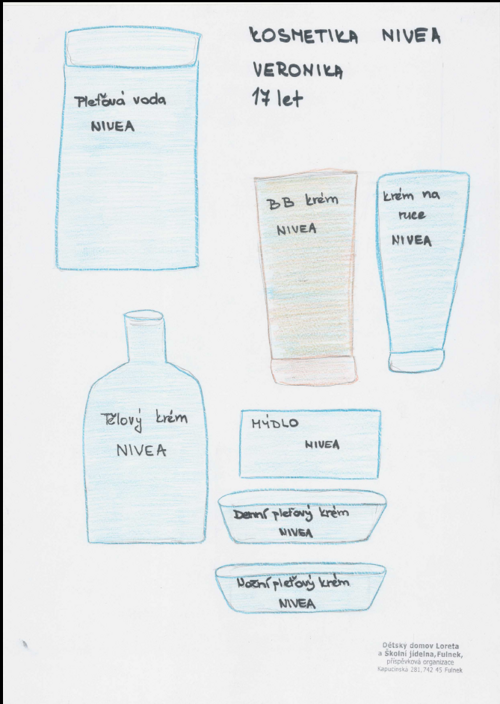 KOSMETIKA NIVEA
VERONIKA
17 let
Pleťová voda
NIVEA
BB krém
NIVEA
krém na
ruce
NIVEA
Tělový krém
NIVEA
MÝDLO
NIVEA
Denní pleťový krém
NIVEA
Noční pleťový krém
NIVEA
Dětský domov Loreta
a Školní jídelna, Fulnek,
příspěvková organizace
Kapucínská 281, 742 45 Fulnek